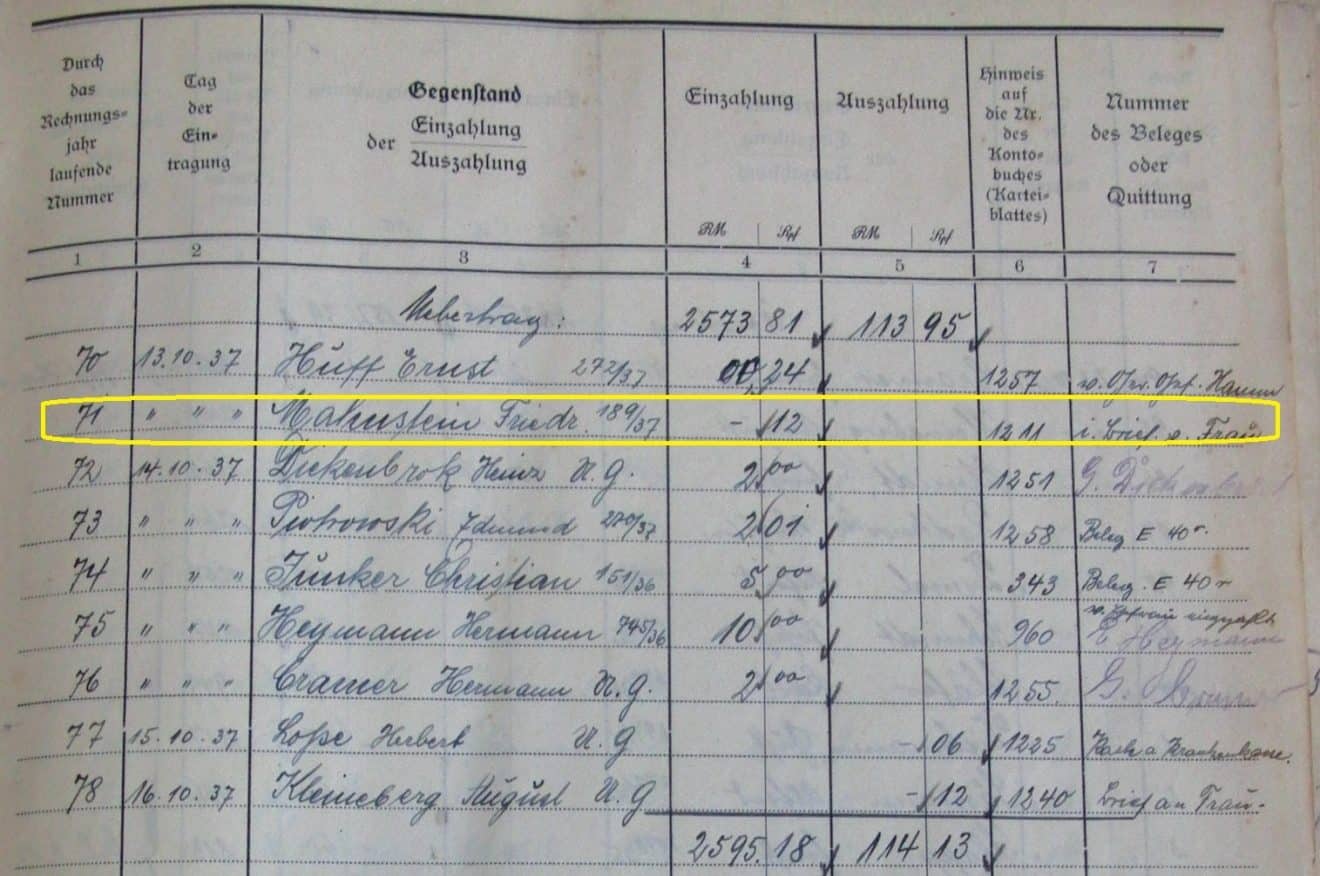 Durch das Rechnungs- jahr laufende Nummer
Tag der Ein- tragung
Gegenstand der Einzahlung Auszahlung
Einzahlung
Auszahlung
Hinweis auf die Nr. des Konto- buches (Kartei- blattes)
Nummer des Beleges oder Quittung
RM Rpf RM Rpf
1 2 3 4 5 6 7
Uebertrag: 2573 81 113 95
70 13.10.37 Huff Ernst 272/37 00,24 1257 Hamm
71 " " " Makustein Friedr. 189/37 - 12 1211 i. Brief. v. Frau
72 14.10.37 Dickenbrok Heinz U.G. 2 00 1251 G.
73 " " " Piotrowski Edmund 270/37 2 01 1258 Beleg E 40
74 " " " Junker Christian 151/36 5 00 343 Beleg. E 40
75 " " " Heymann Hermann 745/36 10 00 960 v. Ehefrau eingezahlt Heymann
76 " " " Cramer Hermann U.G. 2 00 1255.
77 15.10.37 Loße Herbert U.G - 06 1225
78 16.10.37 Kleineberg August U.G - 12 1240 Brief an Frau-
2595.18 114 13